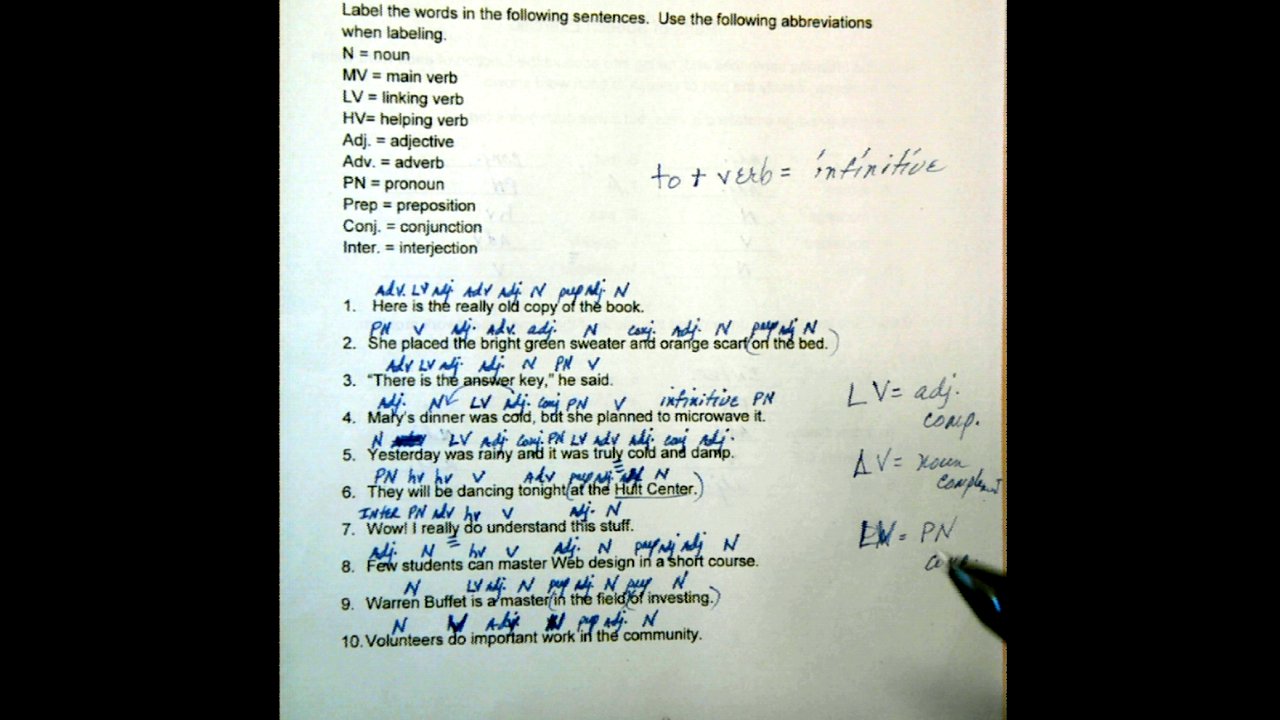 Label the words in the following sentences. Use the following abbreviations
when labeling.
N = noun
MV = main verb
LV = linking verb
HV= helping verb
Adj. = adjective
Adv. = adverb
to + verb = infinitive
PN = pronoun
Prep = preposition
Conj. = conjunction
Inter. = interjection
Adv. LV Adj. Adv Adj. N prep Adj. N
1. Here is the really old copy of the book.
PN V Adj. Adv. adj. N conj. Adj. N prep Adj N
2. She placed the bright green sweater and orange scarf (on the bed.)
Adv LV Adj. Adj. N PN V
3. “There is the answer key,” he said.
Adj. N LV Adj. conj PN V infinitive PN
4. Mary's dinner was cold, but she planned to microwave it.
LV = adj.
comp.
N LV Adj conj. PN LV Adv Adj. conj Adj.
5. Yesterday was rainy and it was truly cold and damp.
LV = noun
complement
PN hv hv V Adv prep Adj N
6. They will be dancing tonight (at the Hult Center.)
INTER PN Adv hv V Adj. N
7. Wow! I really do understand this stuff.
LV = PN
Adj. N hv V Adj. N prep Adj Adj N
8. Few students can master Web design in a short course.
N LV Adj. N prep Adj N prep N
9. Warren Buffet is a master (in the field) (of investing.)
N Adj N prep Adj. N
10. Volunteers do important work in the community.